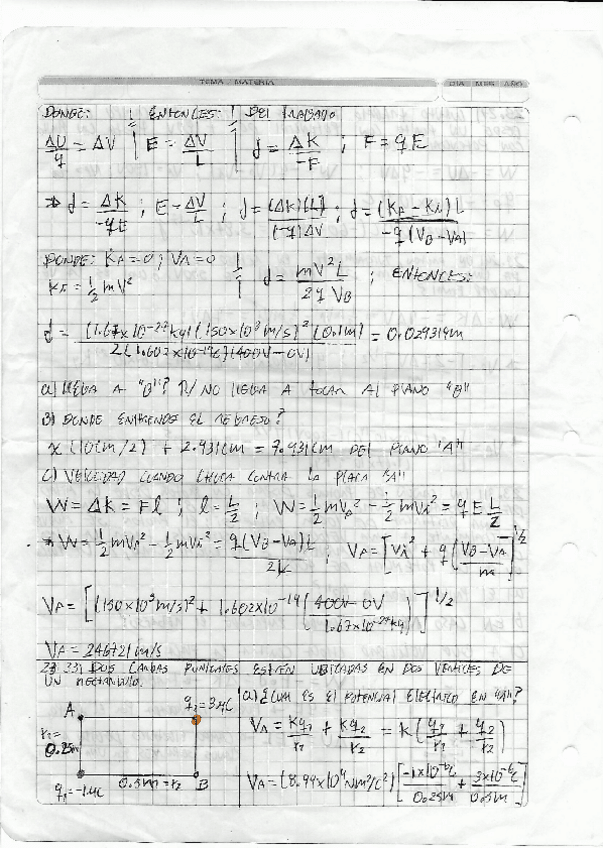 TEMA MATERIA DIA MES AÑO
DONDE: ENTONCES: DEL TRABAJO
ΔU/q = ΔV | E = ΔV/L | d = ΔK/-F ; F = qE
⇒ d = ΔK/-qE ; E = ΔV/L ; d = (ΔK)(L)/(-q)ΔV ; d = (KF - Ki)L/-q(VB - VA)
DONDE: KF = 0 ; VA = 0
d = mV²L/2qVB ; ENTONCES:
Ki = 1/2 mV²
d = (1.67x10⁻²⁷kg)(150x10³m/s)²(0.1m)/2(1.602x10⁻¹⁹C)(400V-0V) = 0.02931m
a) LLEGA A "B"? R/ NO LLEGA A TOCAR AL PLANO "B"
B) DONDE EMPRENDE EL REGRESO?
x (10cm/2) + 2.931cm = 7.931cm DEL PLANO "A"
C) VELOCIDAD CUANDO CHOCA CONTRA LA PLACA "A"
W = ΔK = Fl ; l = L/2 ; W = 1/2 mVF² - 1/2 mVi² = qE L/2
⇒ W = 1/2 mVF² - 1/2 mVi² = q(VB - VA)L/2L ; VF = [Vi² + q(VB - VA/m)]^1/2
VF = [(150x10³m/s)² + 1.602x10⁻¹⁹(400V - 0V/1.67x10⁻²⁷kg)]^1/2
VF = 246721 m/s
23.33) DOS CARGAS PUNTUALES ESTÁN UBICADAS EN DOS VÉRTICES DE
UN RECTÁNGULO.
q2 = 3μC
a) ¿CUAL ES EL POTENCIAL ELÉCTRICO EN "A"?
A
r1 =
0.25m
VA = Kq1/r1 + Kq2/r2 = K(q1/r1 + q2/r2)
q1 = -1μC
0.5m = r2
B
VA = (8.99x10⁹Nm²/C²)[-1x10⁻⁶C/0.25m + 3x10⁻⁶C/0.5m]